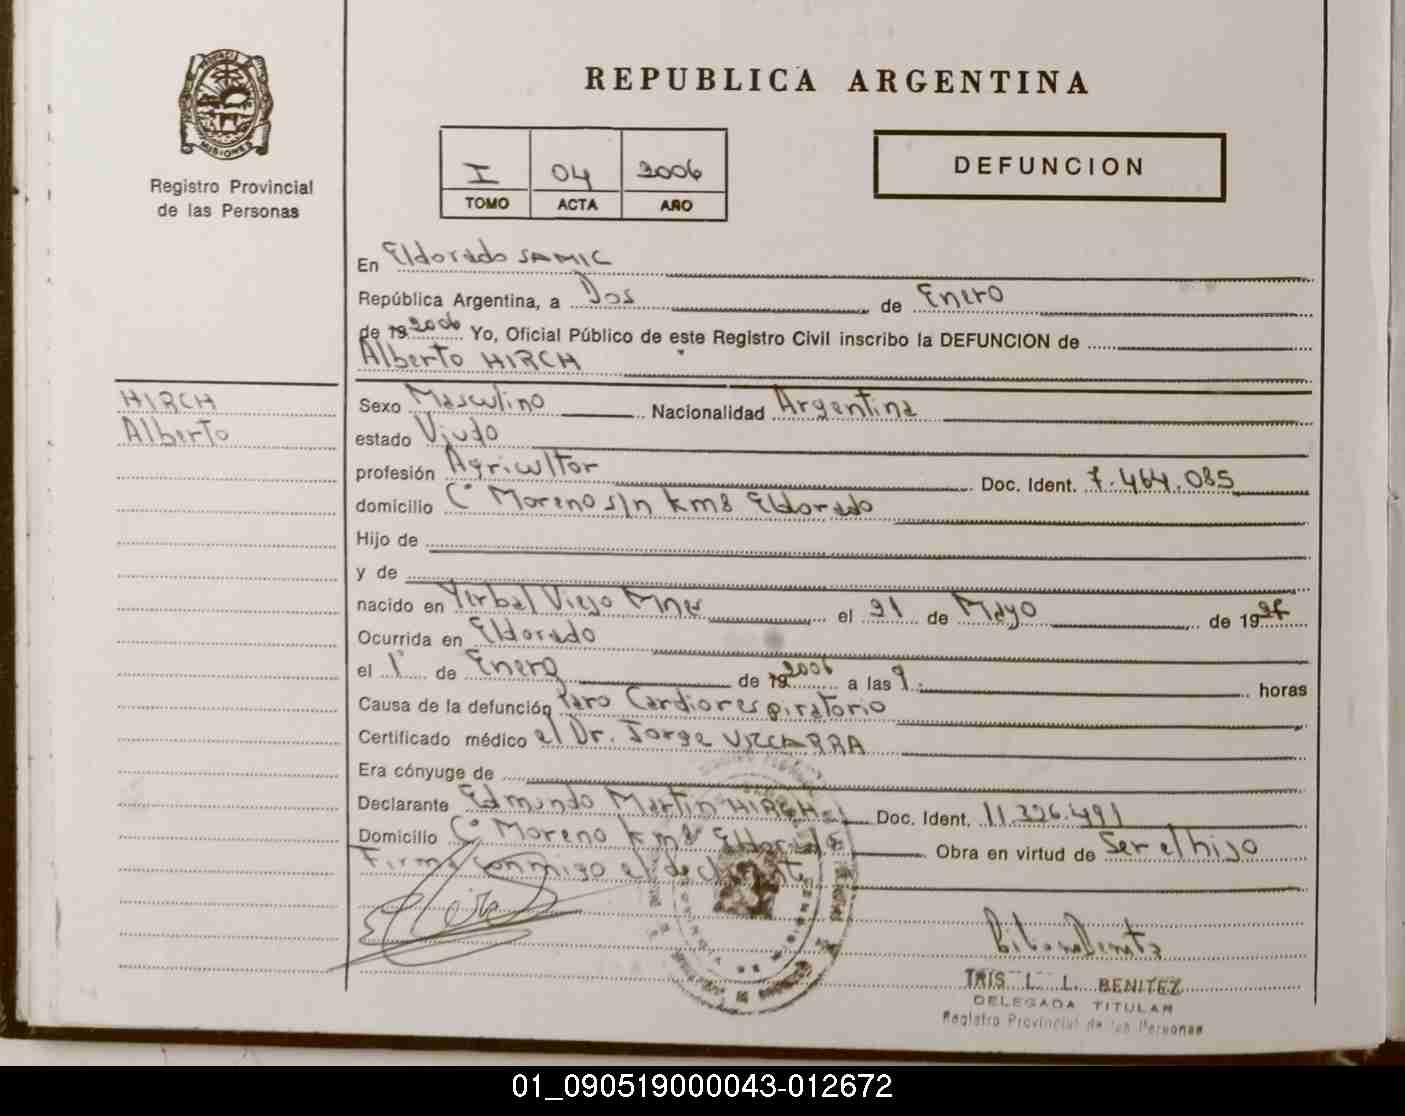 REPUBLICA ARGENTINA
MISIONES
Registro Provincial
de las Personas
I 04 2006
TOMO ACTA AÑO
DEFUNCION
En Eldorado SAMIC
República Argentina, a Dos de Enero
de 19 2006 Yo, Oficial Público de este Registro Civil inscribo la DEFUNCION de
Alberto HIRCH
HIRCH
Alberto
Sexo Masculino Nacionalidad Argentina
estado Viudo
profesión Agricultor Doc. Ident. 7.464.085
domicilio Cº Moreno s/n km8 Eldorado
Hijo de
y de
nacido en Yerbal Viejo Mnes el 21 de Mayo de 19
Ocurrida en Eldorado
el 1º de Enero de 19 2006 a las 9 horas
Causa de la defunción Paro Cardiorespiratorio
Certificado médico el Dr. Jorge VIZCARRA
Era cónyuge de
Declarante Edmundo Martin HIRCH Doc. Ident. 11.226.491
Domicilio Cº Moreno km8 Eldorado Obra en virtud de Ser el hijo
Firma conmigo el declarante
IRIS L. L. BENITEZ
DELEGADA TITULAR
Registro Provincial de las Personas
01_090519000043-012672